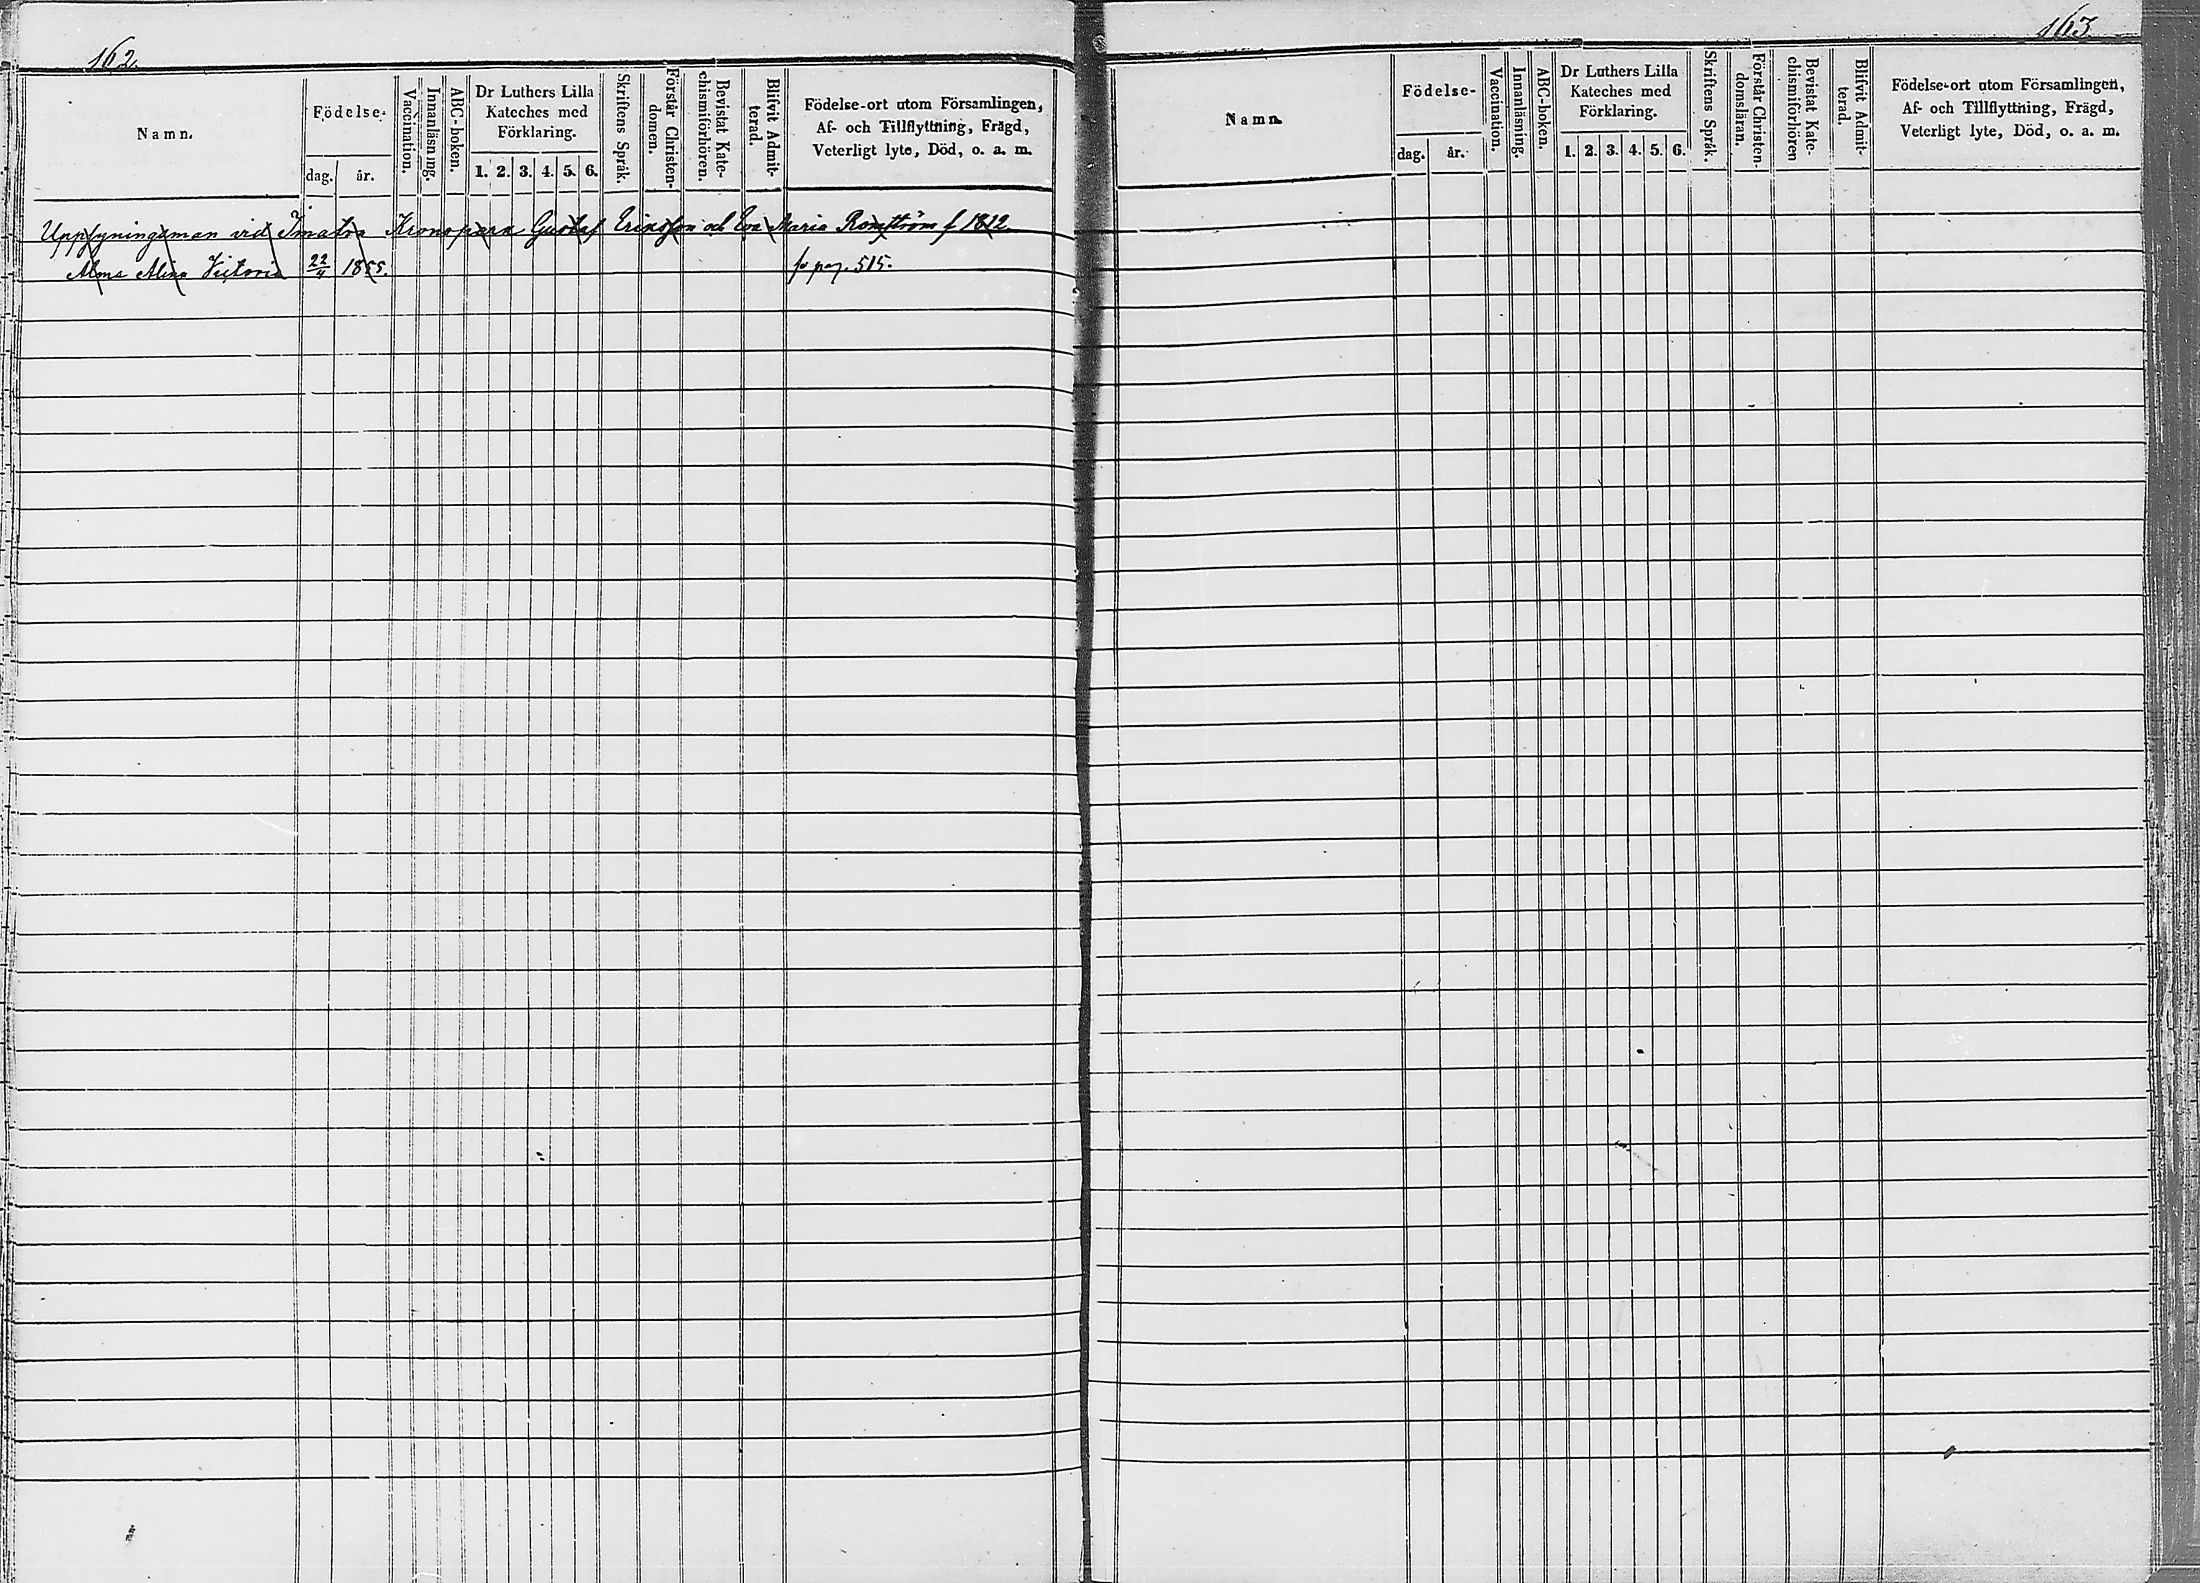 162.
Namn.
Födelse-
dag.
år.
Vaccination.
Innanläsning.
ABC-boken.
Dr Luthers Lilla
Kateches med
Förklaring.
1. 2. 3. 4. 5. 6.
Skriftens Språk.
Förstår Christen-
domen.
Bevistat Kate-
chismiförhören.
Blifvit Admit-
terad.
Födelse-ort utom Församlingen,
Af- och Tillflyttning, Frägd,
Veterligt lyte, Död, o. a. m.
Uppsyningsman vid Imatra Kronopark Gustaf Eriksson och Eva Maria Romström f 1812
Alma Alina Victoria 22/4 1855. fr pag. 515.
163
Namn.
Födelse-
dag.
år.
Vaccination.
Innanläsning.
ABC-boken.
Dr Luthers Lilla
Kateches med
Förklaring.
1. 2. 3. 4. 5. 6.
Skriftens Språk.
Förstår Christen-
domsläran.
Bevistat Kate-
chismiförhören
Blifvit Admit-
terad.
Födelse-ort utom Församlingen,
Af- och Tillflyttning, Frägd,
Veterligt lyte, Död, o. a. m.